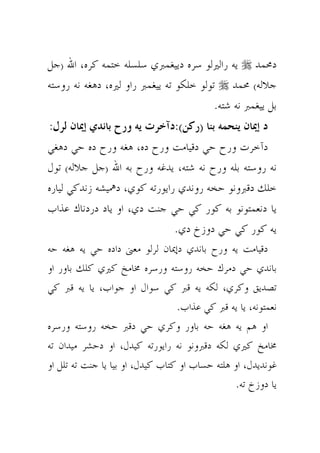 دمحمد ﷺ په رالېږلو سره دپېغمبرۍ سلسله ختمه کړه، الله (جل
جلاله) محمد ﷺ ټولو خلکو ته پېغمبر راو لېږه، دهغه نه روسته
بل پېغمبر نه شته.
د إيمان ينحمه بنا (رکن):دآخرت په ورځ باندې إيمان لرل:
دآخرت ورځ چې دقيامت ورځ ده، هغه ورځ ده چې دهغې
نه روسته بله ورځ نه شته، يدغه ورځ به الله (جل جلاله) ټول
خلك دقبرونو څخه روندې راپورته کوي، دهميشه زندکي لپاره
يا دنعمتونو په کور کې چې جنت دی، او ياد دردناك عذاب
په کور کې چې دوزخ دی.
دقيامت په ورځ باندې دإيمان لرلو معنی داده چې په هغه څه
باندې چې دمرك څخه روسته ورسره مخامخ کيږي کلك باور او
تصديق وکړي، لکه په قبر کې سوال او جواب، يا په قبر کې
نعمتونه، يا په قبر کې عذاب.
او هم په هغه څه باور وکړي چې دقبر څخه روسته ورسره
مخامخ کيږي لکه دقبرونو نه راپورته کيدل، او دحشر ميدان ته
غونډيدل، او هلته حساب او کتاب کيدل، او بيا يا جنت ته تلل او
يا دوزخ ته.